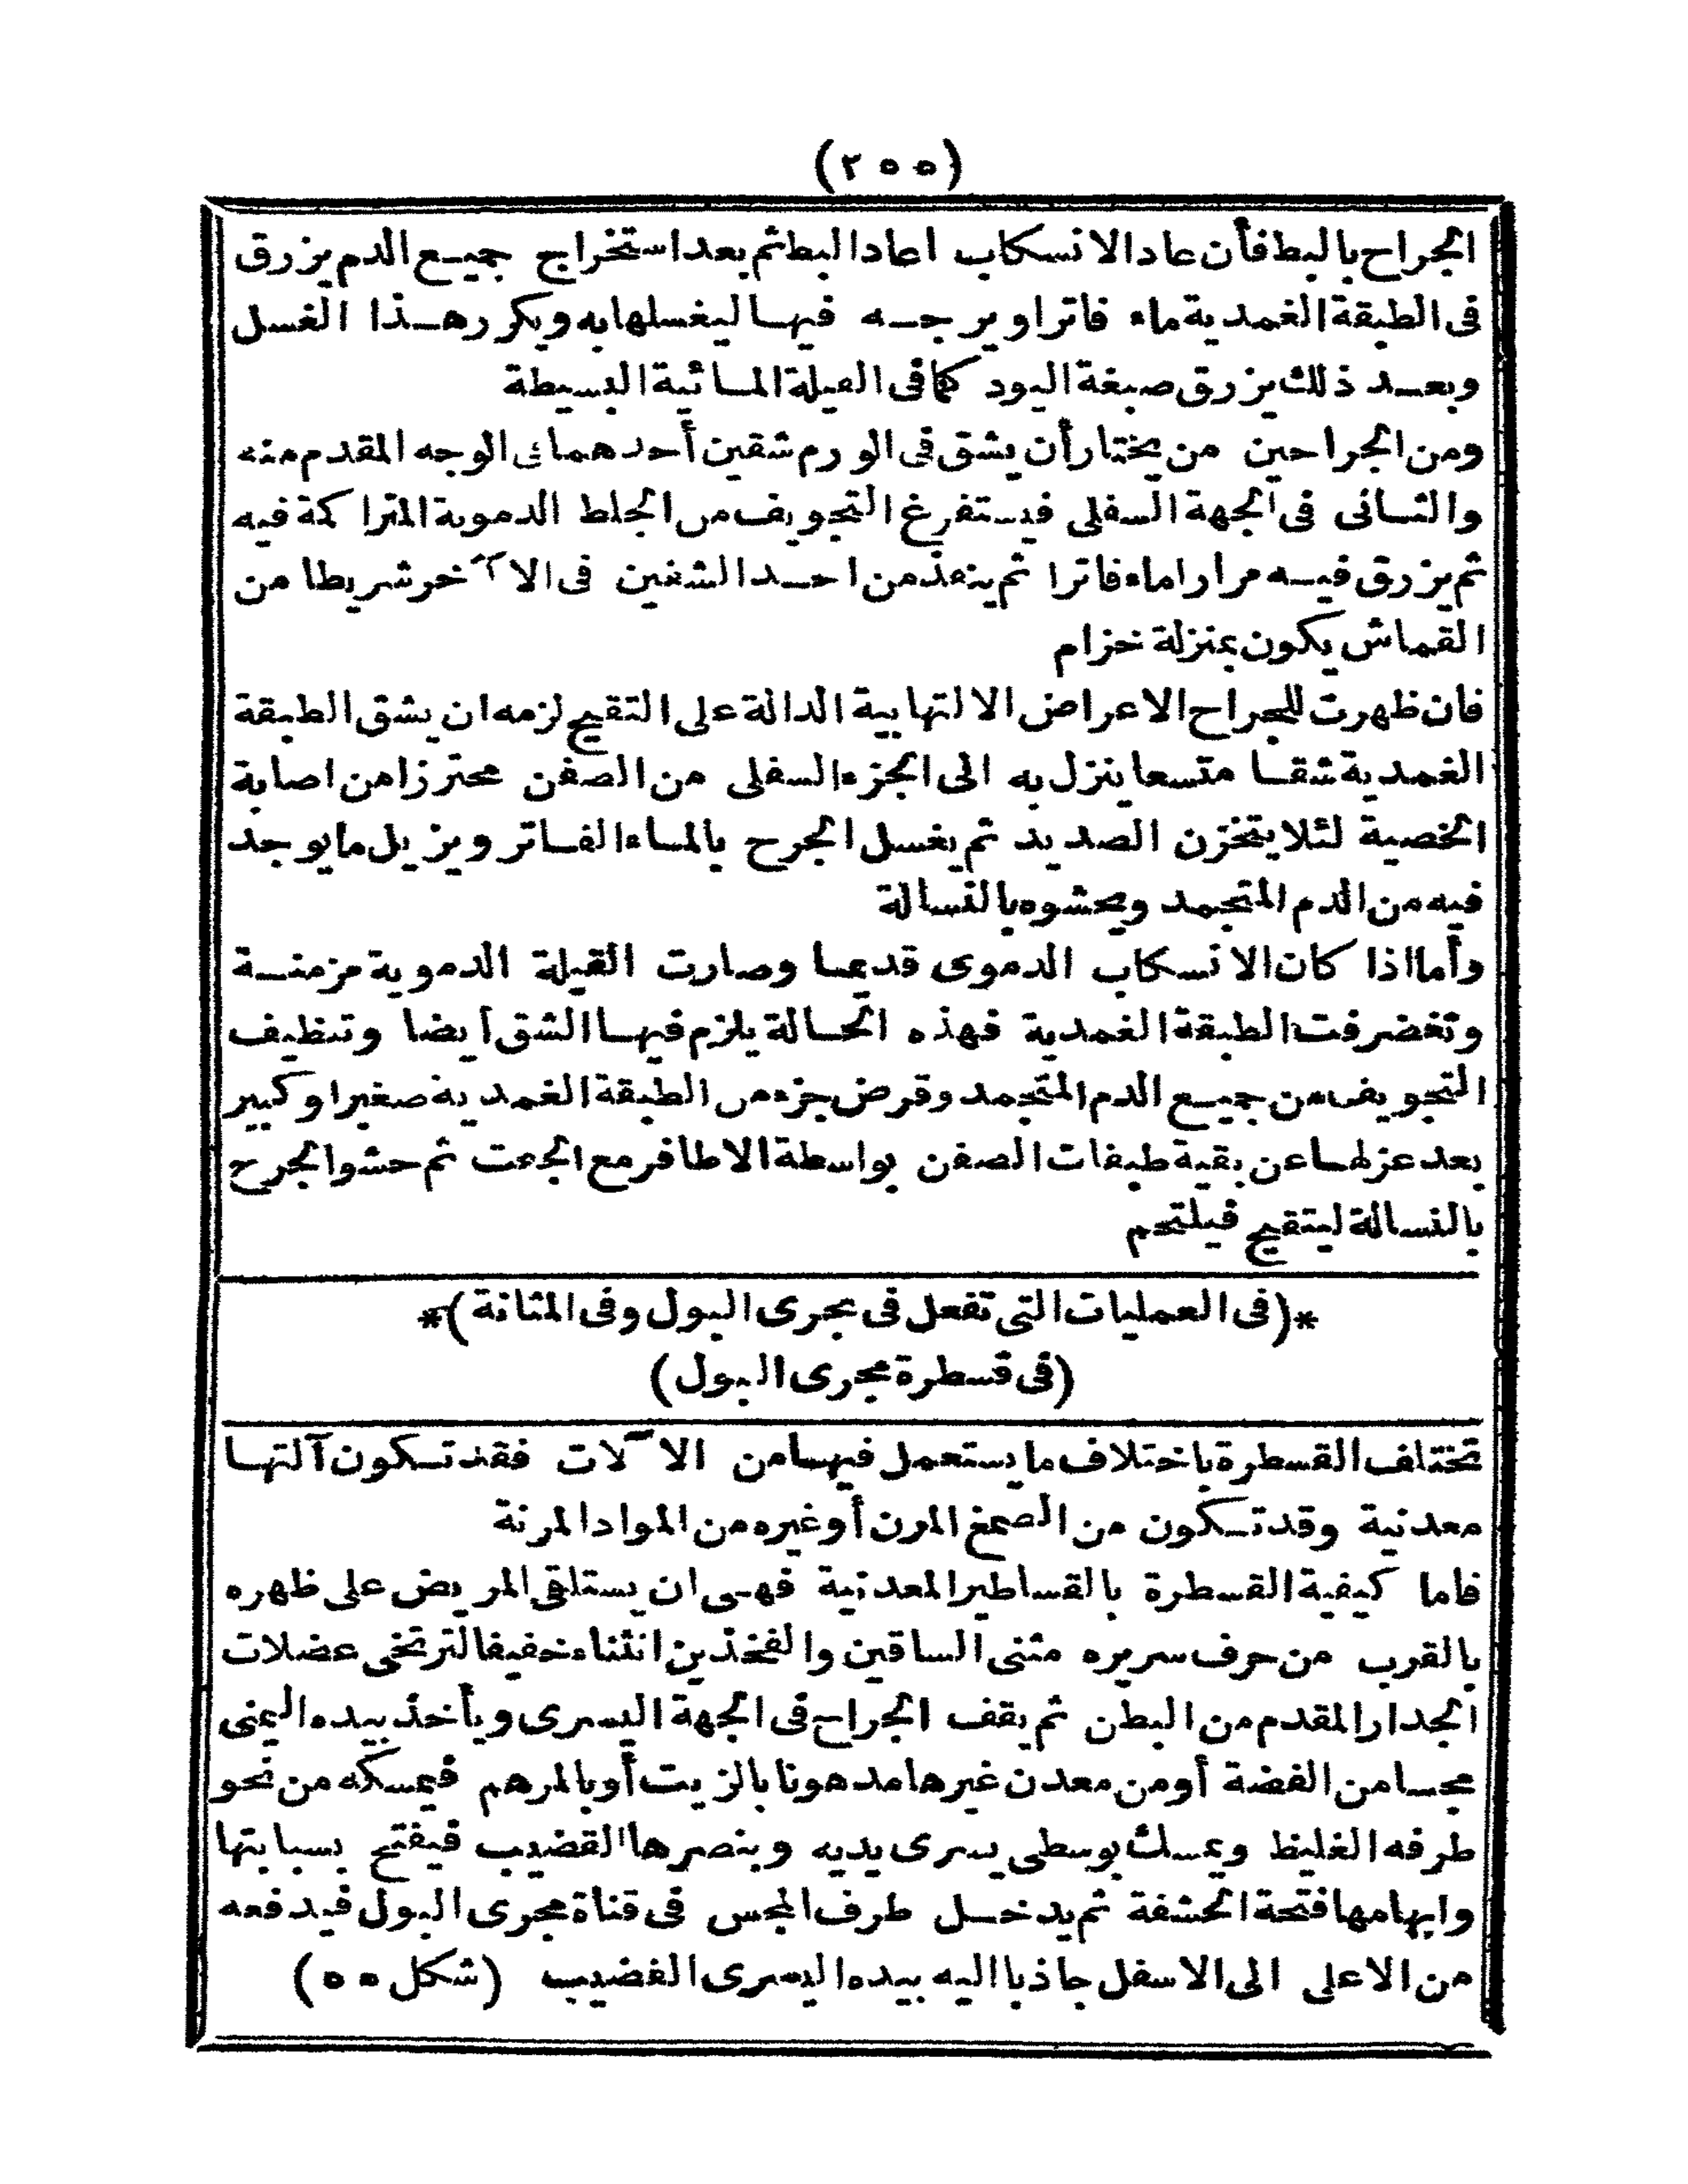 (٢٥٥)
الجراح بالبط فأن عاد الانسكاب اعاد البط ثم بعد استخراج جميع الدم يزرق
فى الطبقة الغمدية ماء فاترا ويرجه فيها ليغسلها به ويكرر هذا الغسل
وبعد ذلك يزرق صبغة اليود كما فى القيلة المائية البسيطة
ومن الجراحين من يختار أن يشق فى الورم شقين أحدهما فى الوجه المقدم منه
والثانى فى الجهة السفلى فيستفرغ التجويف من الجلط الدموية المتراكمة فيه
ثم يزرق فيه مرارا ماء فاترا ثم ينفذ من احد الشقين فى الآخر شريطا من
القماش يكون بمنزلة خزام
فان ظهرت للجراح الاعراض الالتهابية الدالة على التقيح لزمه ان يشق الطبقة
الغمدية شقا متسعا ينزل به الى الجزء السفلى من الصفن محترزا من اصابة
الخصية لئلا يتخزن الصديد ثم يغسل الجرح بالماء الفاتر ويزيل ما يوجد
فيه من الدم المتجمد ويحشوه بالنسالة
وأما اذا كان الانسكاب الدموى قديما وصارت القيلة الدموية مزمنة
وتغضرفت الطبقة الغمدية فهذه الحالة يلزم فيها الشق أيضا وتنظيف
التجويف من جميع الدم المتجمد وقرض جزء من الطبقة الغمدية صغير او كبير
بعد عزلها عن بقية طبقات الصفن بواسطة الاظافر مع الجفت ثم حشو الجرح
بالنسالة ليتقيح فيلتحم
*(فى العمليات التى تفعل فى مجرى البول وفى المثانة)*
(فى قسطرة مجرى البول)
تختلف القسطرة باختلاف ما يستعمل فيها من الآلات فقد تكون آلتها
معدنية وقد تكون من الصمغ المرن أو غيره من المواد المرنة
فاما كيفية القسطرة بالقساطير المعدنية فهى ان يستلقى المريض على ظهره
بالقرب من حرف سريره مثنى الساقين والفخذين انثناء خفيفا لترتخى عضلات
الجدار المقدم من البطن ثم يقف الجراح فى الجهة اليسرى ويأخذ بيده اليمنى
مجسا من الفضة أو من معدن غيرها مدهونا بالزيت أو بالمرهم فيمسكه من نحو
طرفه الغليظ ويمسك بوسطى يسرى يديه وبنصرها القضيب فيفتح بسبابتها
وابهامها فتحة الحشفة ثم يدخل طرف المجس فى قناة مجرى البول فيدفعه
من الاعلى الى الاسفل جاذبا اليه بيده اليسرى القضيب (شكل ٥٥)